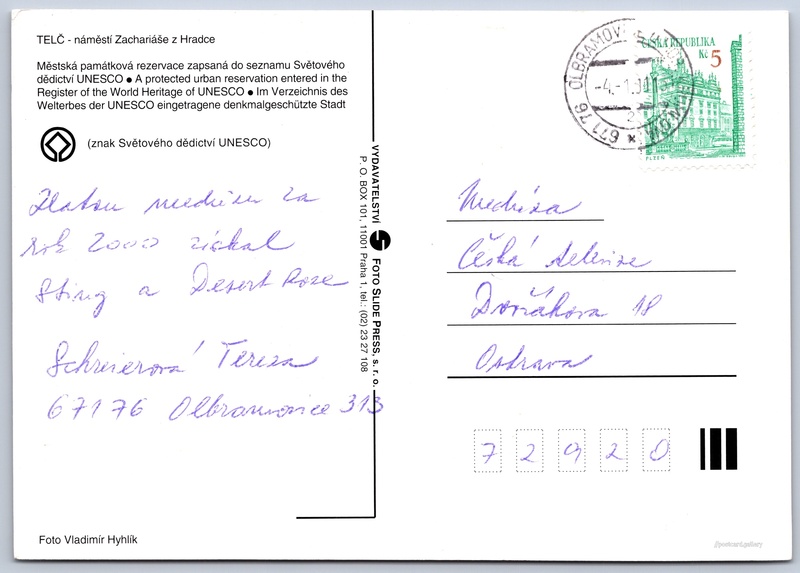 TELČ - náměstí Zachariáše z Hradce
Městská památková rezervace zapsaná do seznamu Světového
dědictví UNESCO ● A protected urban reservation entered in the
Register of the World Heritage of UNESCO ● Im Verzeichnis des
Welterbes der UNESCO eingetragene denkmalgeschützte Stadt
(znak Světového dědictví UNESCO)
Zlatou medúzu za
rok 2000 získal
Sting a Desert Rose
Schreierová Tereza
67176 Olbramovice 313
Foto Vladimír Hyhlík
VYDAVATELSTVÍ FOTO SLIDE PRESS, s. r. o.
P. O. BOX 101, 11001 Praha 1, tel.: (02) 23 27 108
671 76 OLBRAMOV
-4.-1.01
ČESKÁ REPUBLIKA
Kč 5
PLZEŇ
Medúza
Česká televize
Dvořákova 18
Ostrava
72920
//postcard.gallery